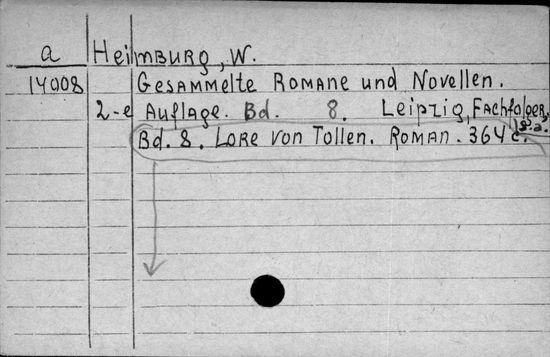 a Heimburg, W.
14008 Gesammelte Romane und Novellen.
2-e Auflage. Bd. 8. Leipzig, Fachfolger,
s.a.
Bd. 8. Lore von Tollen. Roman. 364 c.